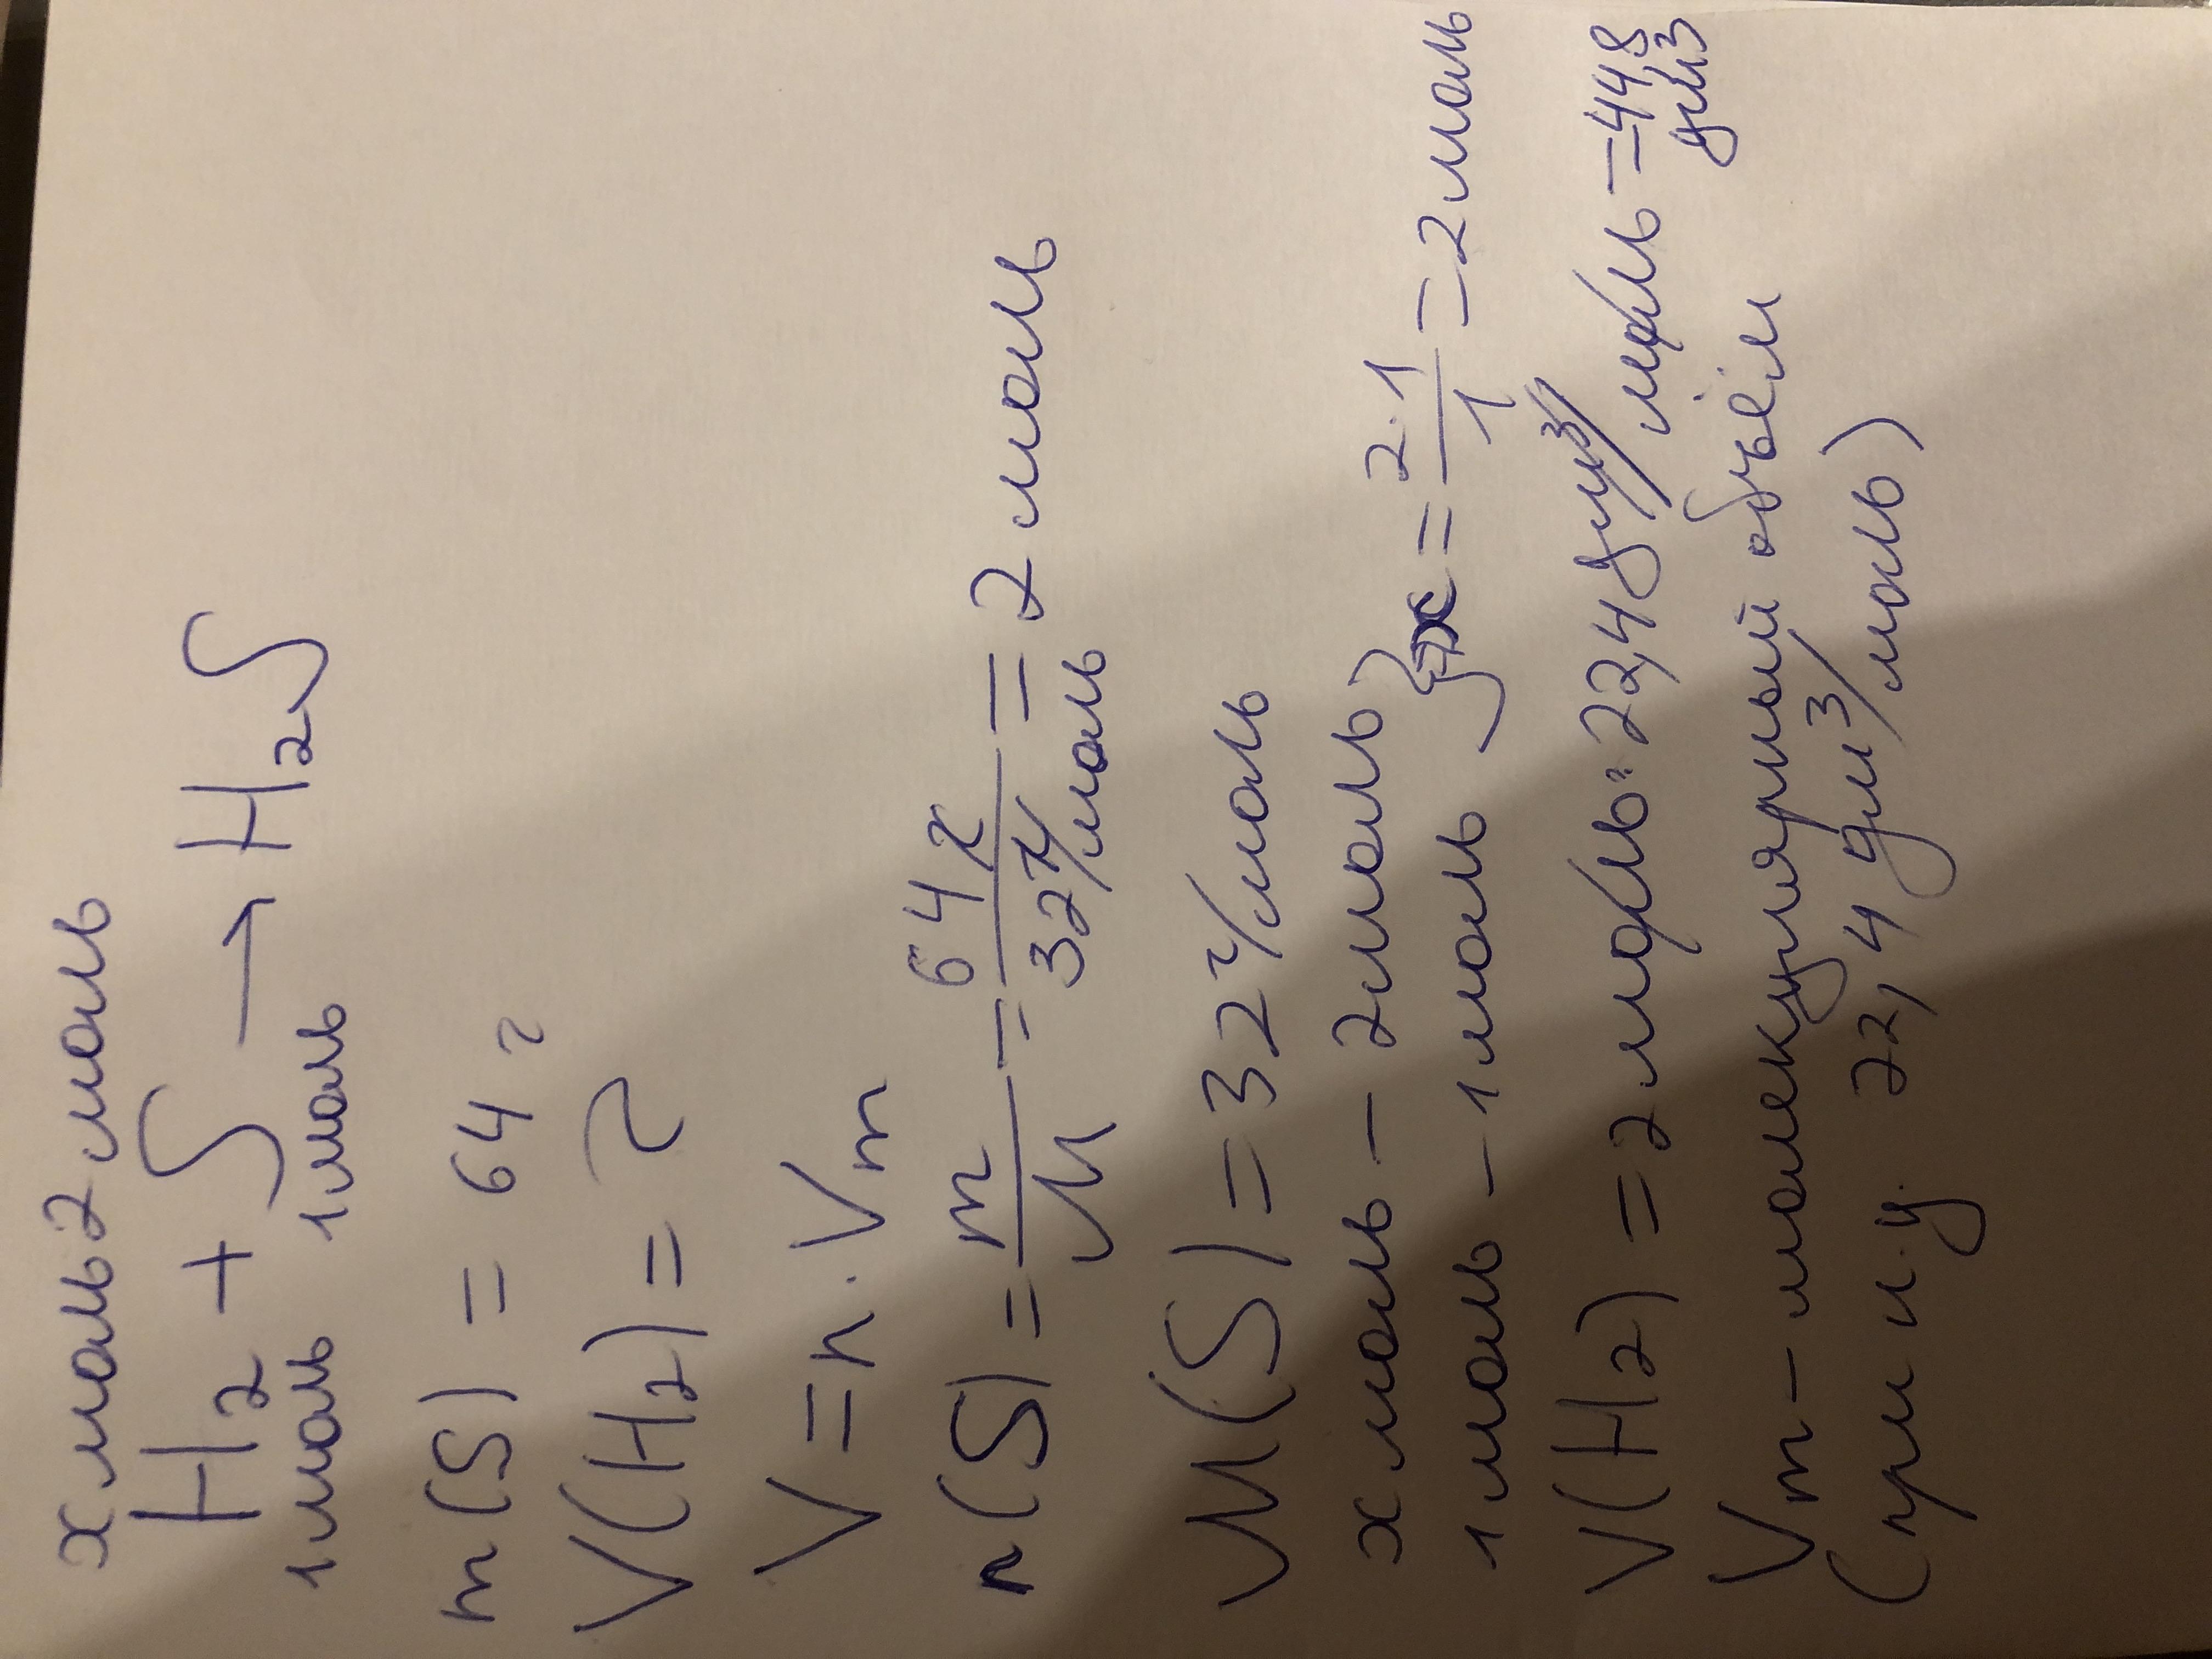 x моль 2 моль
H2 + S → H2S
1 моль 1 моль
m(S) = 64 г
V(H2) = ?
V = n · Vm
n(S) = m/M = 64 г/32 г/моль = 2 моль
M(S) = 32 г/моль
x моль – 2 моль } x = 2·1/1 = 2 моль
1 моль – 1 моль
V(H2) = 2 моль · 22,4 дм³/моль = 44,8 дм3
Vm – молекулярный объём
(при н.у. 22,4 дм³/моль)